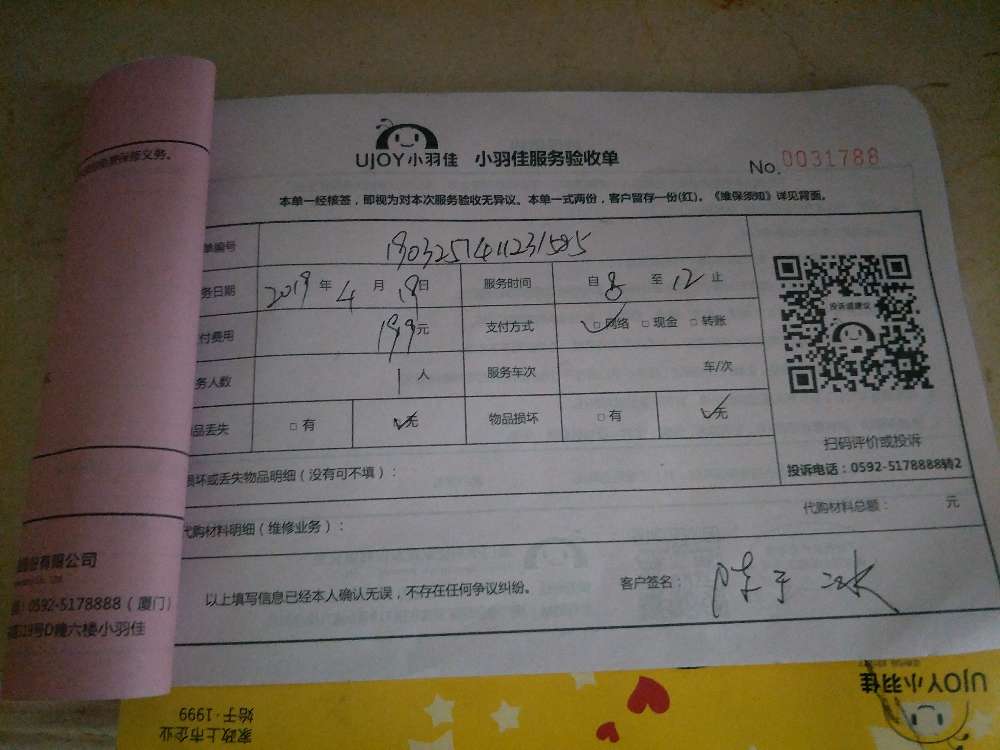 保修义务。
UJOY小羽佳 小羽佳服务验收单
No. 0031788
本单一经核签，即视为对本次服务验收无异议。本单一式两份，客户留存一份(红)。《维保须知》详见背面。
单编号 1903251411231585
务日期 2019 年 4 月 19 日 服务时间 自 8 至 12 止
付费用 199 元 支付方式 ☑ 网络 □ 现金 □ 转账
务人数 1 人 服务车次 车/次
品丢失 □ 有 ☑ 无 物品损坏 □ 有 ☑ 无
投诉或建议
扫码评价或投诉
投诉电话：0592-5178888转2
损坏或丢失物品明细（没有可不填）：
代购材料明细（维修业务）： 代购材料总额： 元
以上填写信息已经本人确认无误，不存在任何争议纠纷。 客户签名： 陈于冰
份有限公司
0592-5178888（厦门）
19号D幢六楼小羽佳
UJOY小羽佳
家政上市企业
始于·1999